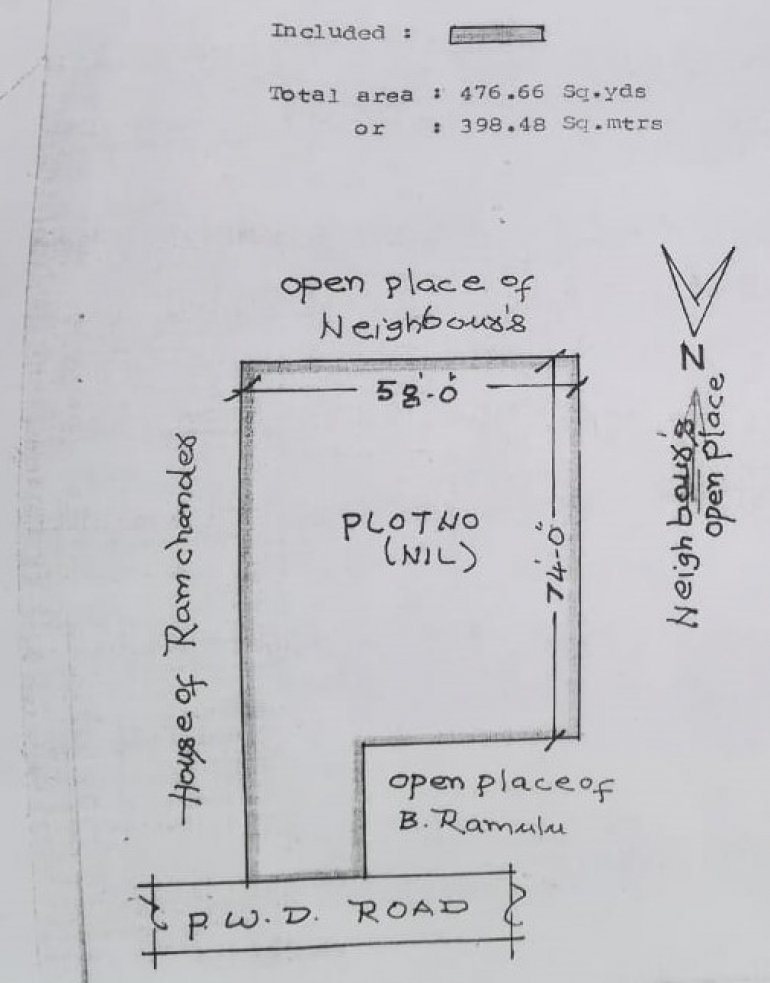 Included :
Total area : 476.66 Sq.yds
or : 398.48 Sq.mtrs
open place of
Neighbour's
58'-0"
PLOT NO
(NIL)
74'-0"
House of Ramchander
N
Neighbour's
open place
open place of
B. Ramulu
P.W.D. ROAD